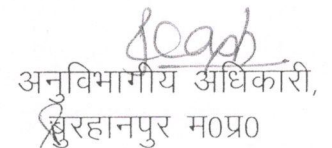 अनुविभागीय अधिकारी,
बुरहानपुर म0प्र0